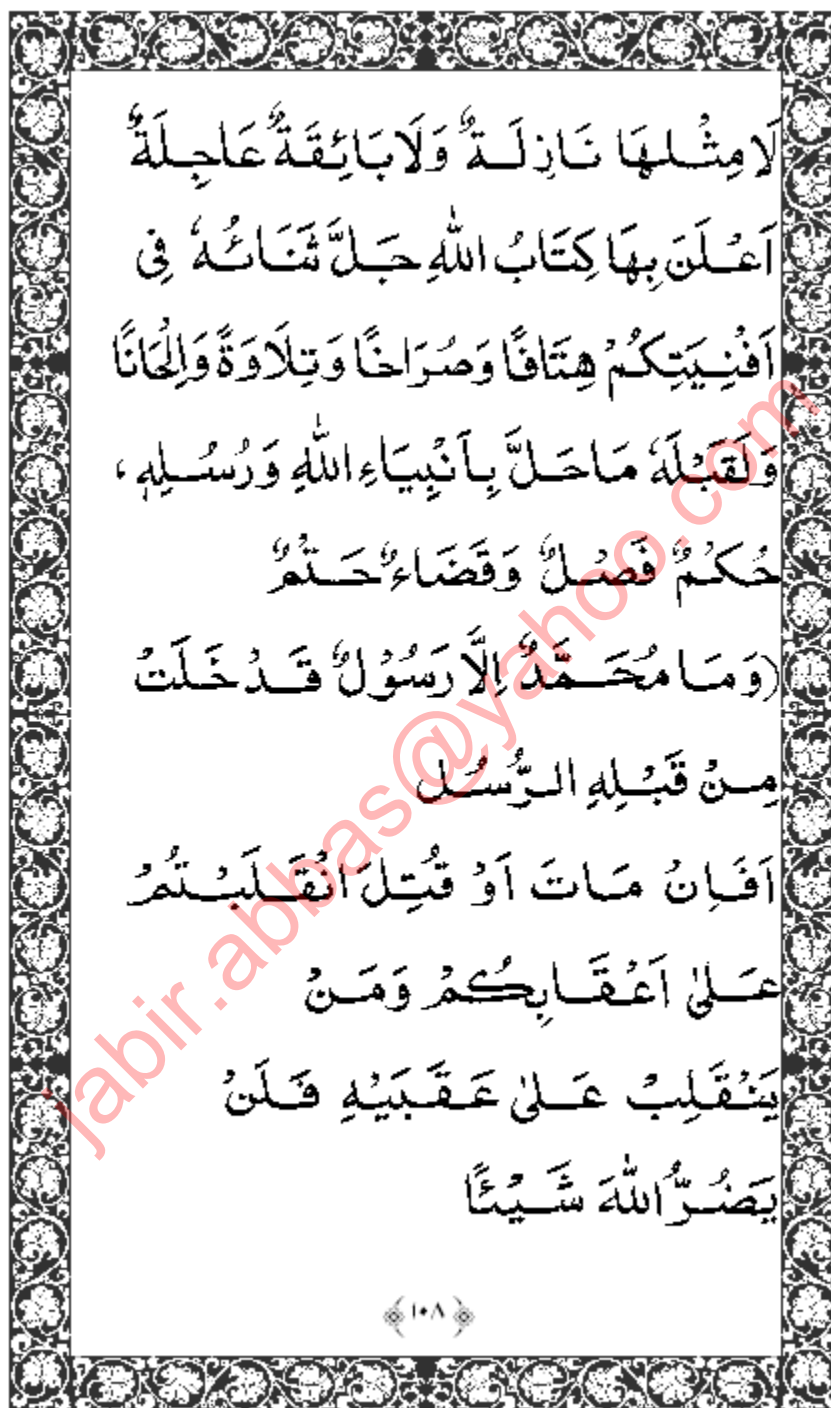 لَامِثْلهَا نَازِلَةٌ وَلَابَائِقَةٌ عَاجِلَةٌ
اَعْلَنَ بِهَا كِتَابُ اللّٰهِ جَلَّ ثَنَائُهٗ فِی
اَفْنِیَتِكُمْ هِتَافًا وَصُرَاخًا وَتِلَاوَةً وَاِلْحَانًا
وَلَقَبْلَهٗ مَاحَلَّ بِاَنْبِیَاءِ اللّٰهِ وَرُسُلِهٖ،
حُكْمٌ فَصْلٌ وَقَضَاءٌ حَتْمٌ
(وَمَا مُحَمَّدٌ اِلَّا رَسُوْلٌ قَدْ خَلَتْ
مِنْ قَبْلِهِ الرُّسُل
اَفَاِنْ مَاتَ اَوْ قُتِلَ انْقَلَبْتُمْ
عَلىٰ اَعْقَابِكُمْ وَمَنْ
یَنْقَلِبْ عَلىٰ عَقَبَیْهِ فَلَنْ
یَضُرَّ اللّٰهَ شَیْئًا
﴿۱۰۸﴾
jabir.abbas@yahoo.com